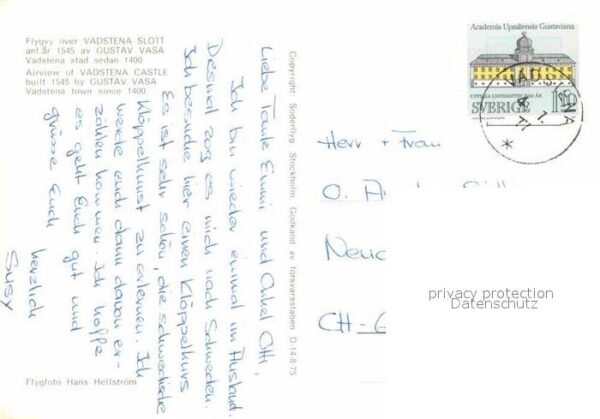 Flygvy över VADSTENA SLOTT
anl.år 1545 av GUSTAV VASA
Vadstena stad sedan 1400
Airview of VADSTENA CASTLE
built 1545 by GUSTAV VASA
Vadstena town since 1400
Liebe Tante Emmi und Onkel Otti,
Ich bin wieder einmal im Ausland.
Diesmal zog es mich nach Schweden.
Ich besuche hier einen Klöppelkurs
Es ist sehr schön, die schwedische
Klöppelkunst zu erlernen. Ich
werde euch dann davon er-
zählen kommen. Ich hoffe
es geht Euch gut und
grüsse Euch
herzlich
Susy
Flygfoto Hans Hellström
Copyright Söderflyg. Stockholm Godkänd av försvarsstaben D-14-8 75
Academia Upsaliensis Gustaviana
UPPSALA UNIVERSITET 500 ÅR
SVERIGE 110
VADSTENA
7
77
Herr + Frau
O.
Neu
CH-6
privacy protection
Datenschutz